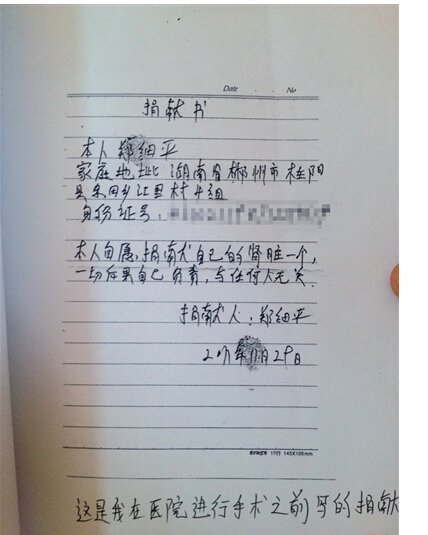 Date No
捐献书
本人郑细平
家庭地址 湖南省郴州市桂阳
县 田乡江里村 组
身份证号:
本人自愿,捐献自己的肾脏一个,
一切后果自己负责,与任何人无关.
捐献人:郑细平
年 月29日
17行 145X105mm
这是我在医院进行手术之前写的捐献